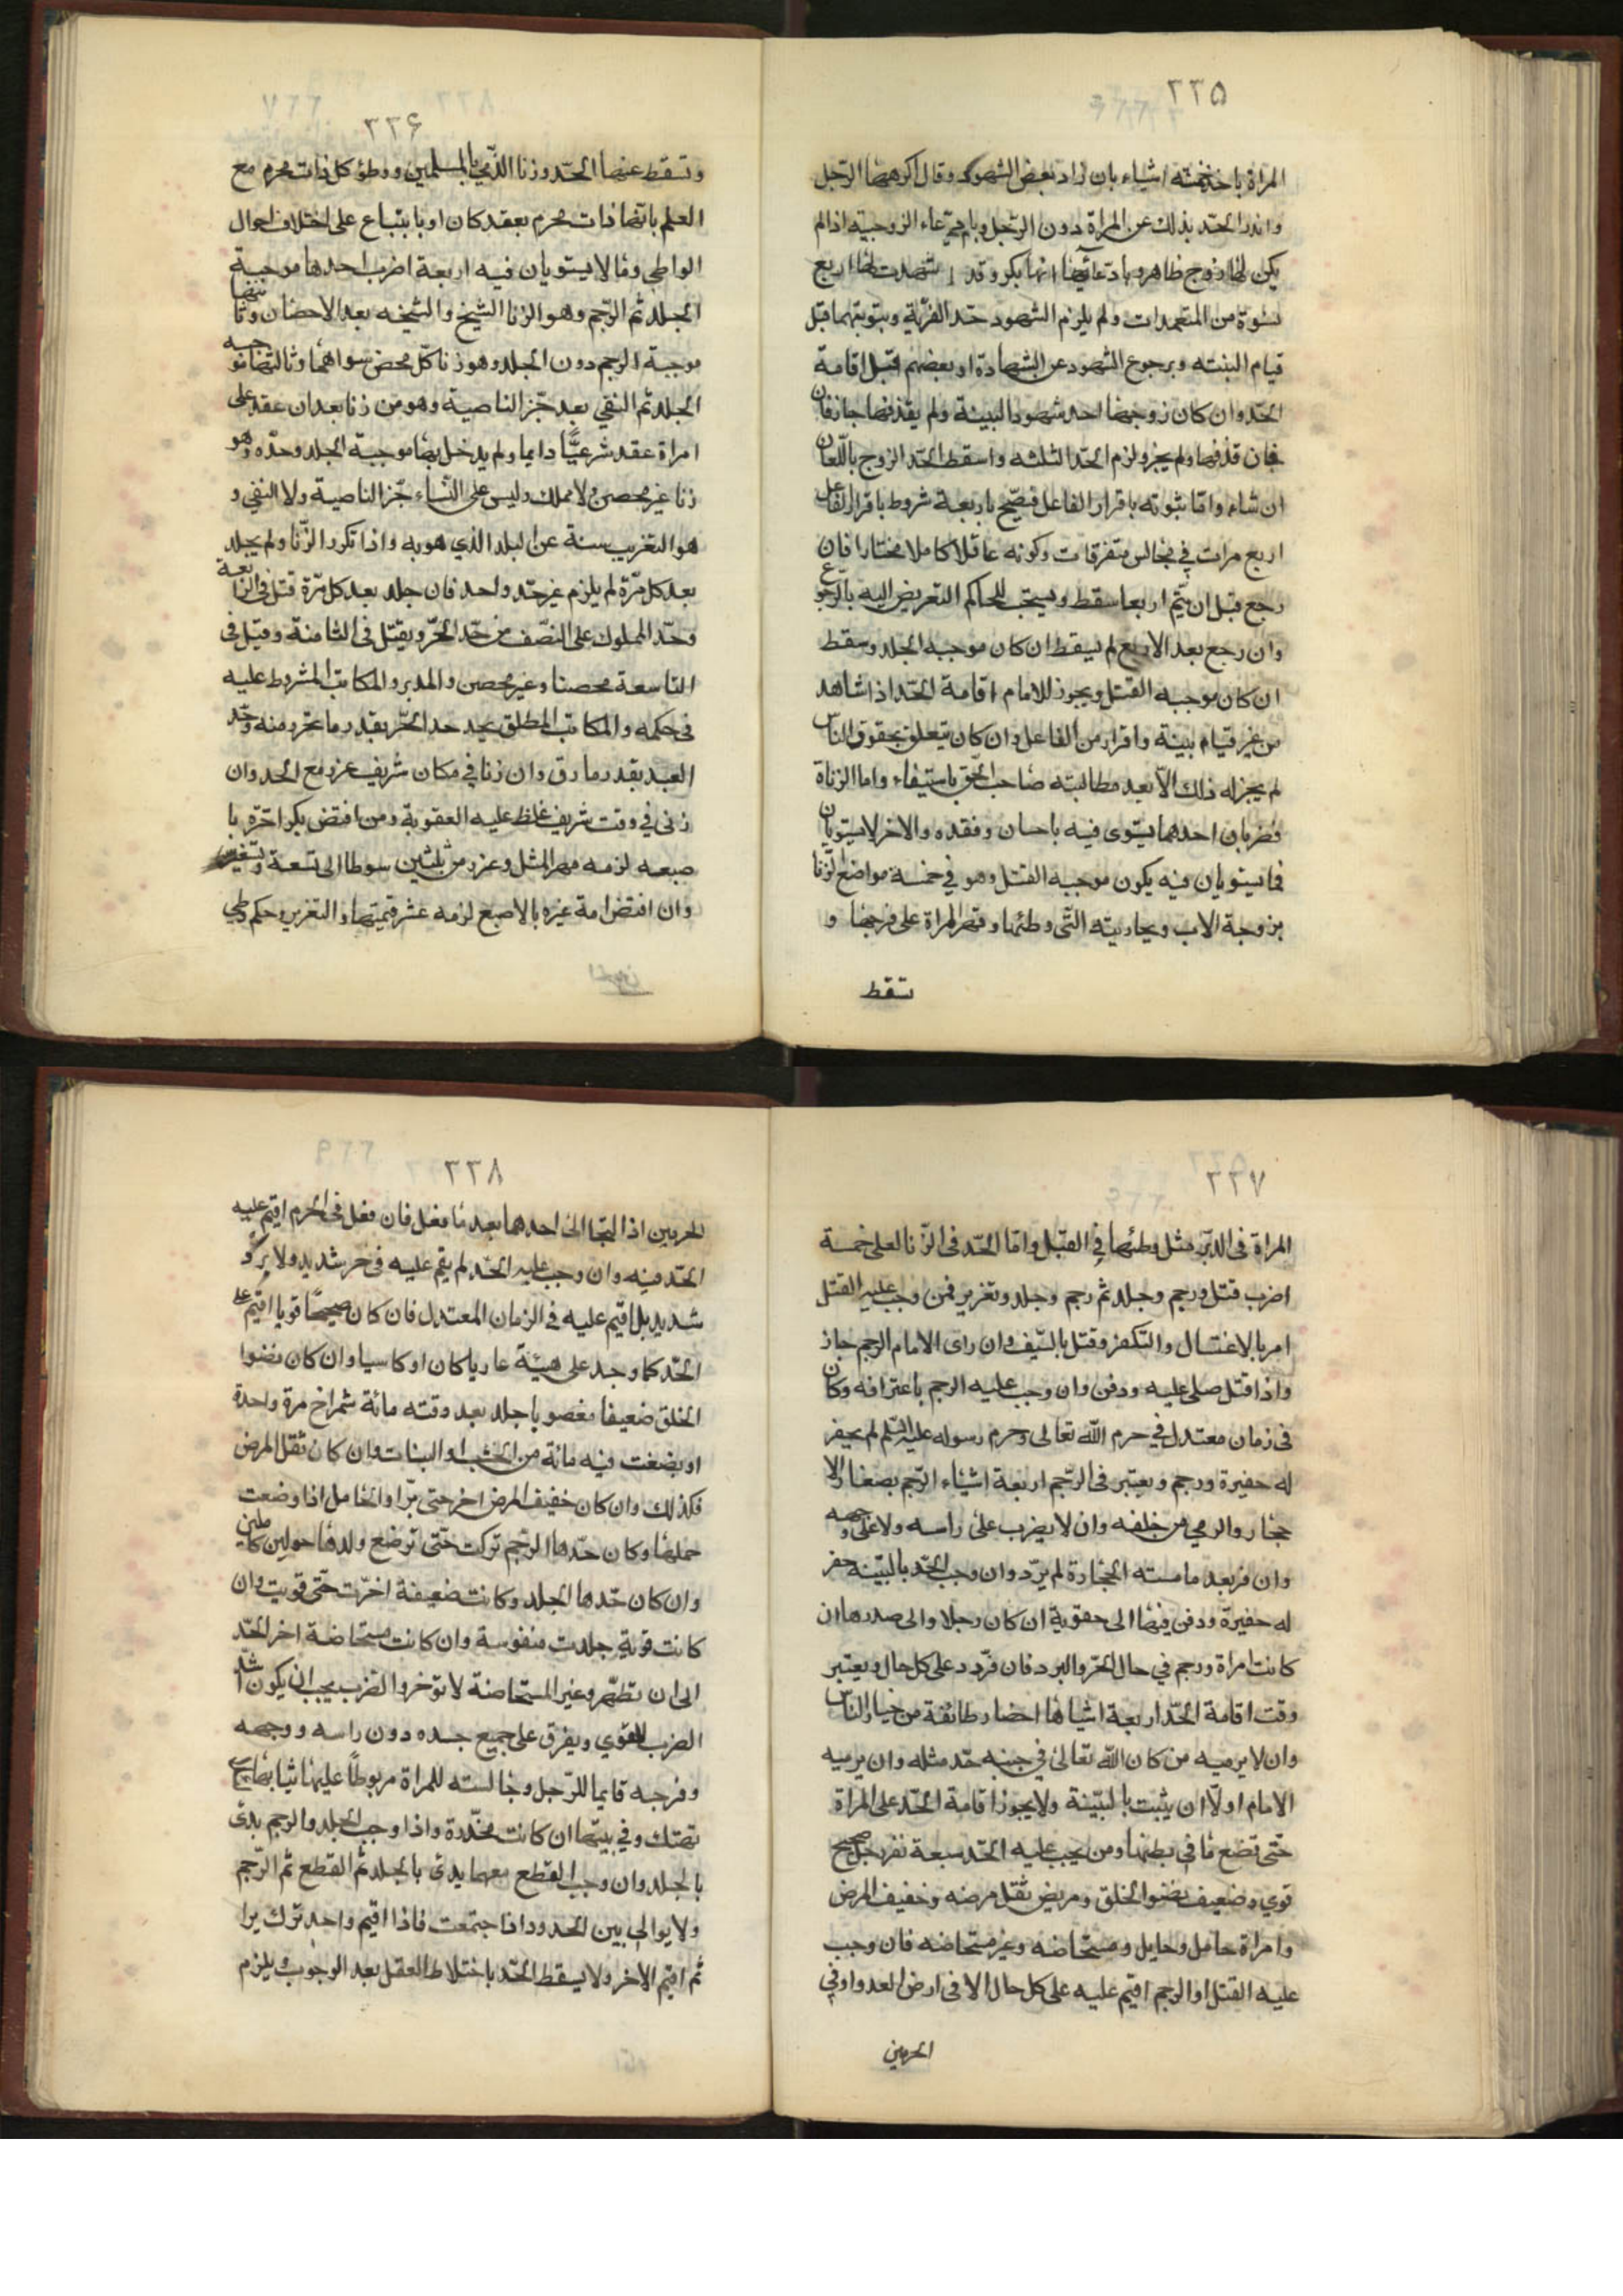 ٢٣٥
المراة باحد خمسة اشياء بان زاد بعض الشهود وقال اكرهها الرجل
واندرا الحد بذلك عن المراة دون الرجل وبادعاء الزوجية اذا لم
يكن لها زوج ظاهر وبادعائها انها بكر وقد شهدت لها اربع
نسوة من المتعمدات ولم يلزم الشهود حد الفرية وبتوبتهما قبل
قيام البينه وبرجوع الشهود عن الشهادة او بعضهم قبل اقامة
الحد وان كان زوجها احد شهود البينة ولم يقذفها جاز فان
فان قذفها ولم يجز ولزم الحد الثلثه واسقط الحد الزوج باللعان
ان شاء واما ثبوته باقرار الفاعل فيصح باربعة شروط باقرار الفاعل
اربع مرات في مجالس متفرقات وكونه عاقلا كاملا مختارا فان
رجع قبل ان يتم اربعا سقط ويستحب للحاكم التعريض اليه بالرجوع
وان رجع بعد الاربع لم يسقط ان كان موجبه الجلد وسقط
ان كان موجبه القتل ويجوز للامام اقامة الحد اذا شاهد
من غير قيام بينة واقرار من الفاعل وان كان يتعلق بحقوق الناس
لم يجز له ذلك الا بعد مطالبته صاحب الحق باستيفاء واما الزناة
فضربان احدهما يستوى فيه باحسان وفقده والاخر لا يستويان
فما يستويان فيه يكون موجبه القتل وهو في خمسة مواضع الزنا
بزوجة الاب وبجاريته التى وطئها وقهر المراة على فرجها و
تسقط
٢٣۶
وتسقط عنها الحد وزنا الذمي بالمسلمين ووطؤ كل ذات محرم مع
العلم بانها ذات محرم بعقد كان او بابتياع على اختلاف احوال
الواطي وما لا يستويان فيه اربعة اضرب احدها موجبة
الجلد ثم الرجم وهو الزنا الشيخ والشيخه بعد الاحصان وثانيها
موجبة الرجم دون الجلد وهو زنا كل محصن سواهما وثالثها موجبه
الجلد ثم النفي بعد جز الناصية وهو من زنا بعد ان عقد على
امراة عقد شرعيا دايما ولم يدخل بها موجبة الجلد وحده وهو
زنا غير محصن ولا مملك وليس على النساء جز الناصية ولا النفي و
هو التغريب سنة عن البلد الذي هو به واذا تكرر الزنا ولم يجلد
بعد كل مرة لم يلزم غير حد واحد فان جلد بعد كل مرة قتل فى الرابعة
وحد المملوك على النصف من حد الحر ويقتل فى الثامنة وقيل فى
التاسعة محصنا وغير محصن والمدبر والمكاتب المشروط عليه
فى حكمه والمكاتب المطلق يحد حد الحر بقدر ما تحرر منه وحد
العبد بقدر ما رق وان زنا في مكان شريف عزر مع الحد وان
زنى في وقت شريف غلظ عليه العقوبة ومن افتض بكرا حرة با
صبعه لزمه مهر المثل وعزر من ثلثين سوطا الى تسعة وتسعين
وان افتض امة غيره بالاصبع لزمه عشر قيمتها والتعزير وحكم وطي
٢٣٧
المراة فى الدبر مثل وطئها في القبل واما الحد فى الزنا لعلى خمسة
اضرب قتل ورجم وجلد ثم رجم وجلد وتعزير فمن وجب عليه القتل
امر بالاغتسال والتكفن وقتل بالسيف وان راى الامام الرجم جاز
واذا قتل صلى عليه ودفن وان وجب عليه الرجم باعترافه وكان
فى زمان معتدل في حرم الله تعالى وحرم رسوله عليه السلم لم يحفر
له حفيرة ورجم ويعتبر فى الرجم اربعة اشياء الرجم بصغار الا
حجار والرمي من خلفه وان لا يضرب على راسه ولا على وجهه
وان فر بعد ما مسته الحجارة لم يرد وان وجب الحد بالبينه حفر
له حفيرة ودفن فيها الى حقوية ان كان رجلا والى صدرها ان
كانت امراة ورجم في حال الحر والبرد فان فر رد على كل حال ويعتبر
وقت اقامة الحد اربعة اشيا ها احضار طائفة من خيار الناس
وان لا يرميه من كان الله تعالى في جنبه حد مثله وان يرميه
الامام اولا ان يثبت بالبينة ولا يجوز اقامة الحد على المراة
حتى تضع ما في بطنها ومن يجب عليه الحد سبعة نفر رجل صحيح
قوي وضعيف نضو الخلق ومريض ثقل مرضه وخفيف المرض
وامراة حامل وحايل ومستحاضه وغير مستحاضه فان وجب
عليه القتل او الرجم اقيم عليه على كل حال الا فى ارض العدو او في
الحرمين
٢٣٨
الحرمين اذا التجا الى احدهما بعد ما فعل فان فعل فى الحرم اقيم عليه
الحد فيه وان وجب عليه الحد لم يقم عليه فى حر شديد ولا برد
شديد بل اقيم عليه فى الزمان المعتدل فان كان صحيحا قويا اقيم عليه
الحد كما وجد على هيئة عاريا كان او كاسيا وان كان نضوا
الخلق ضعيفا مغصوبا جلد بعد وقته مائة شمراخ مرة واحدة
او بضغث فيه مائة من الخشب او النبات وان كان ثقل المرض
فكذلك وان كان خفيف المرض اخر حتى برا والحامل اذا وضعت
حملها وكان حدها الرجم تركت حتى ترضع ولدها حولين كاملين
وان كان حدها الجلد وكانت ضعيفة اخرت حتى قويت وان
كانت قوية جلدت منفوسة وان كانت مستحاضة اخر الحد
الى ان تطهر وغير المستحاضة لا توخر والضرب يجب ان يكون اشد
الضرب للقوي ويفرق على جميع جسده دون راسه ووجهه
وفرجه قايما للرجل وجالسته للمراة مربوطا عليها ثيابها
تهتك وفي بيتها ان كانت مخدرة واذا وجب الجلد والرجم بدئ
بالجلد وان وجب القطع معهما بدئ بالجلد ثم القطع ثم الرجم
ولا يوالي بين الحدود اذا جتمعت فاذا اقيم واحد ترك يرا
ثم اقيم الاخر ولا يسقط الحد باختلاط العقل بعد الوجوب ويلزم